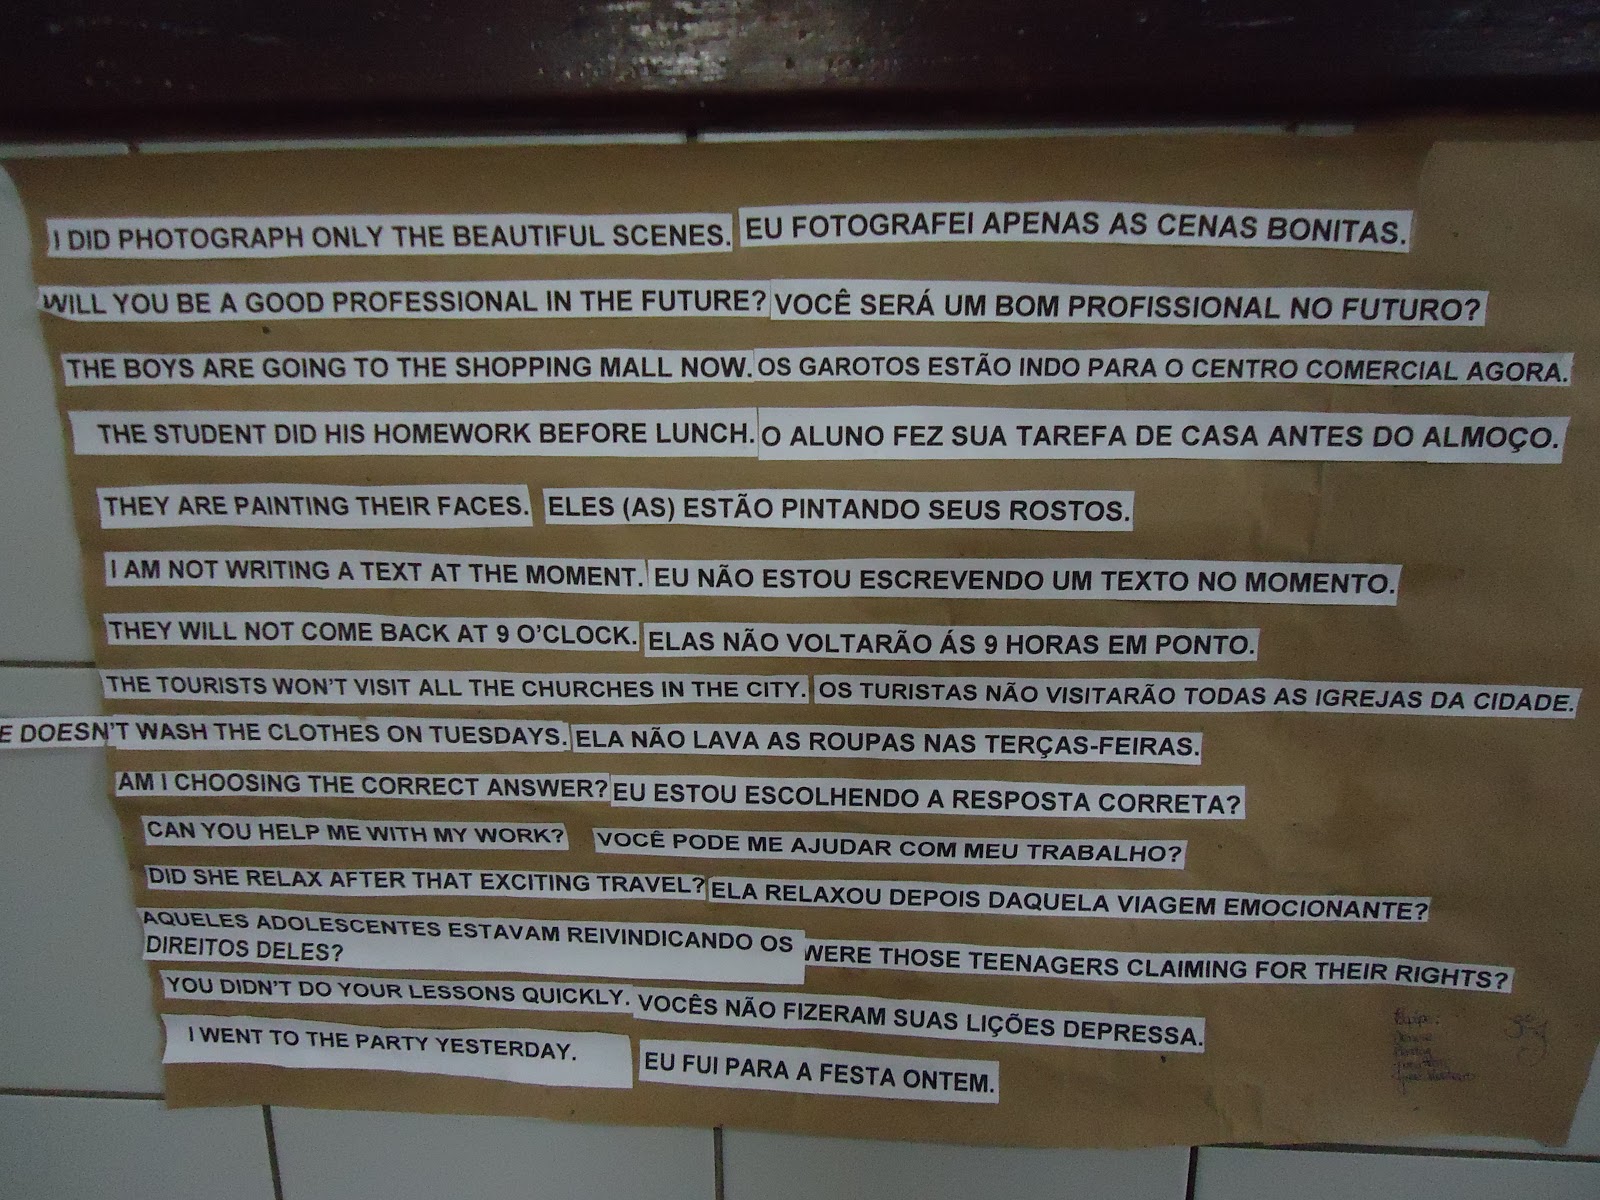 I DID PHOTOGRAPH ONLY THE BEAUTIFUL SCENES. EU FOTOGRAFEI APENAS AS CENAS BONITAS.
WILL YOU BE A GOOD PROFESSIONAL IN THE FUTURE? VOCÊ SERÁ UM BOM PROFISSIONAL NO FUTURO?
THE BOYS ARE GOING TO THE SHOPPING MALL NOW. OS GAROTOS ESTÃO INDO PARA O CENTRO COMERCIAL AGORA.
THE STUDENT DID HIS HOMEWORK BEFORE LUNCH. O ALUNO FEZ SUA TAREFA DE CASA ANTES DO ALMOÇO.
THEY ARE PAINTING THEIR FACES. ELES (AS) ESTÃO PINTANDO SEUS ROSTOS.
I AM NOT WRITING A TEXT AT THE MOMENT. EU NÃO ESTOU ESCREVENDO UM TEXTO NO MOMENTO.
THEY WILL NOT COME BACK AT 9 O'CLOCK. ELAS NÃO VOLTARÃO ÁS 9 HORAS EM PONTO.
THE TOURISTS WON'T VISIT ALL THE CHURCHES IN THE CITY. OS TURISTAS NÃO VISITARÃO TODAS AS IGREJAS DA CIDADE.
E DOESN'T WASH THE CLOTHES ON TUESDAYS. ELA NÃO LAVA AS ROUPAS NAS TERÇAS-FEIRAS.
AM I CHOOSING THE CORRECT ANSWER? EU ESTOU ESCOLHENDO A RESPOSTA CORRETA?
CAN YOU HELP ME WITH MY WORK? VOCÊ PODE ME AJUDAR COM MEU TRABALHO?
DID SHE RELAX AFTER THAT EXCITING TRAVEL? ELA RELAXOU DEPOIS DAQUELA VIAGEM EMOCIONANTE?
AQUELES ADOLESCENTES ESTAVAM REIVINDICANDO OS
DIREITOS DELES? WERE THOSE TEENAGERS CLAIMING FOR THEIR RIGHTS?
YOU DIDN'T DO YOUR LESSONS QUICKLY. VOCÊS NÃO FIZERAM SUAS LIÇÕES DEPRESSA.
I WENT TO THE PARTY YESTERDAY. EU FUI PARA A FESTA ONTEM.
Equipe: